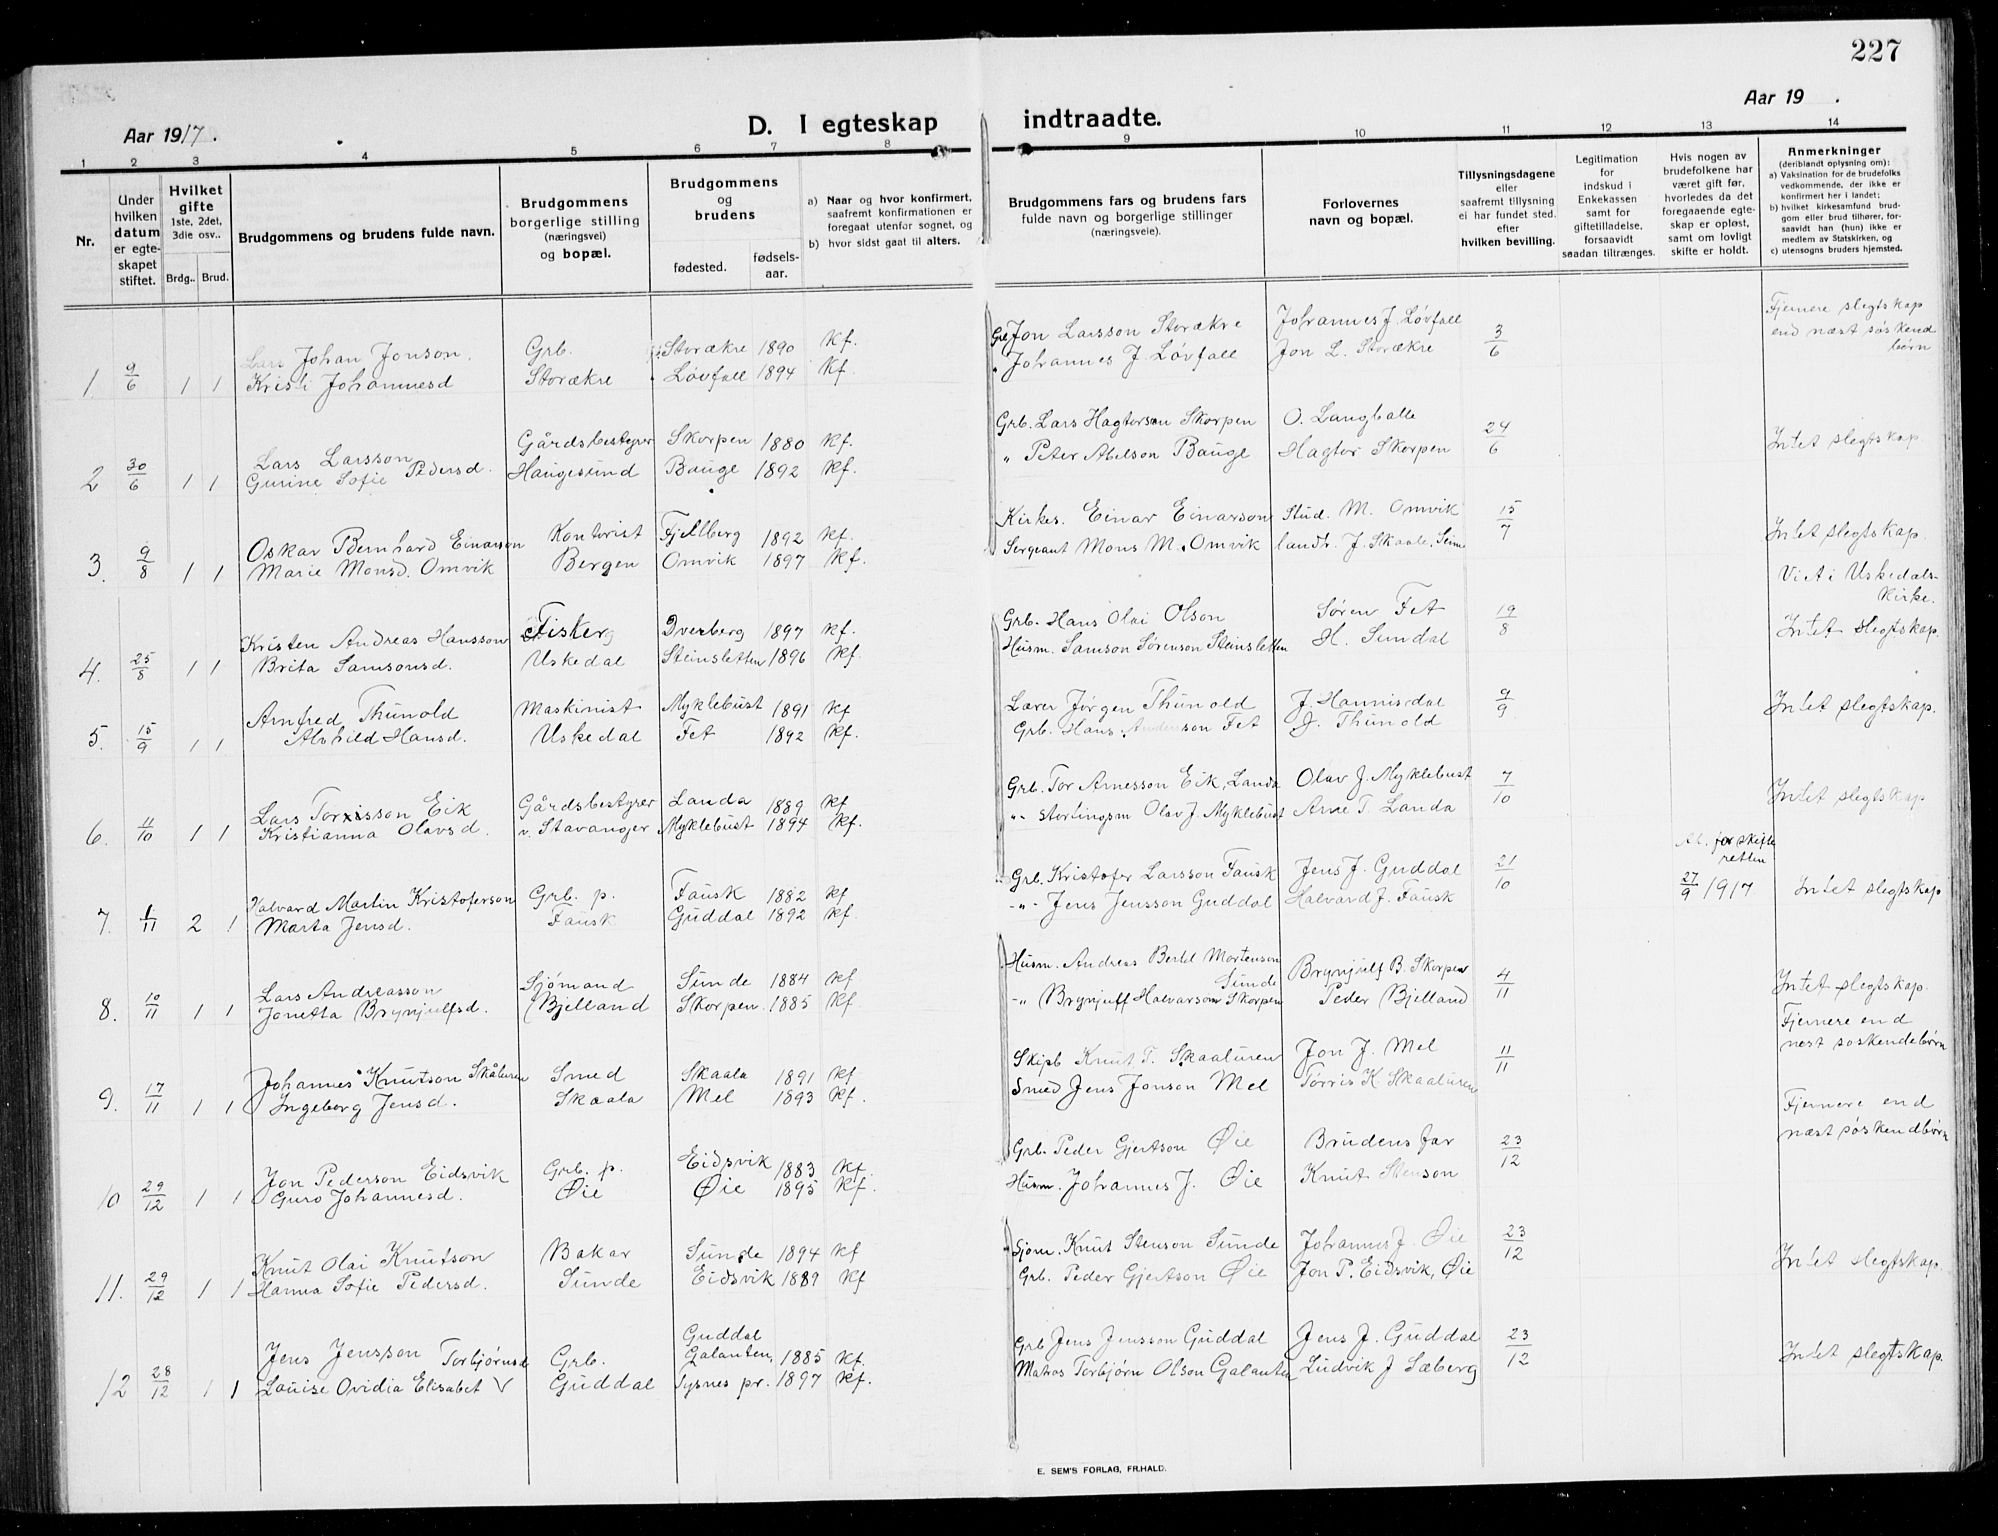 227
Aar 1917.
D. I egteskap
indtraadte.
Aar 19 .
1 2 3 4 5 6 7 8 9 10 11 12 13 14
Nr.
Under hvilken datum er egte-skapet stiftet.
Hvilket gifte
1ste, 2det, 3die osv..
Brdg.. Brud.
Brudgommens og brudens fulde navn.
Brudgommens borgerlige stilling (næringsvei) og bopæl.
Brudgommens og brudens
fødested. fødsels-aar.
a) Naar og hvor konfirmert, saafremt konfirmationen er foregaat utenfor sognet, og
b) hvor sidst gaat til alters.
Brudgommens fars og brudens fars fulde navn og borgerlige stillinger (næringsveie).
Forlovernes navn og bopæl.
Tillysningsdagene eller saafremt tillysning ei har fundet sted. efter hvilken bevilling.
Legitimation for indskud i Enkekassen samt for giftetilladelse, forsaavidt saadan tiltrænges.
Hvis nogen av brudefolkene har været gift før, hvorledes da det foregaaende egte-skap er opløst, samt om lovligt skifte er holdt.
Anmerkninger
(deriblandt oplysning om):
a) Vaksination for de brudefolks vedkommende, der ikke er konfirmert her i landet;
b) hvilket kirkesamfund brud-gom eller brud tilhører, for-saavidt han (hun) ikke er medlem av Statskirken, og
c) utensogns bruders hjemsted.
1. 9/6 1 1 Lars Johan Jonson. Grb. Storækre 1890 Kf. Grb Jon Larsson Storækre Johannes J. Løvfall 3/6 Fjernere slegtskap end næst søskendbørn
Kristi Johannesd Storækre Løvfall 1894 Kf. " Johannes J Løvfall Jon L. Storækre
2 30/6 1 1 Lars Larsson Gårdsbestyrer Skorpen 1880 Kf. Grb. Lars Hagtorson Skorpen O. Langballe 24/6 Intet slegtskap.
Gurine Sofie Pedersd. Haugesund Bauge 1892 Kf. " Peter Abelson Bauge Hagtor Skorpen
3. 9/8 1 1 Oskar Bernhard Einarson Kontorist Fjellberg 1892 Kf. Kirkes. Einar Einarson Stud. M. Omvik 15/7 Intet slegtskap.
Marie Monsd. Omvik Bergen Omvik 1897 Kf. Sergeant Mons M. Omvik landh. J. Skaale, Seim
Viet i Uskedals-kirke.
4. 25/8 1 1 Kristen Andreas Hansson Fisker Dverberg 1897 Kf. Grb. Hans Olai Olson Søren Fet 19/8 Intet slegtskap.
Brita Samsonsd. Uskedal Steinsletten 1896 Kf. Husm. Samson Sørenson Steinsletten H. Sundal
5. 15/9 1 1 Arnfred Thunold Maskinist Myklebust 1891 Kf Lærer Jørgen Thunold J. Hannisdal 9/9 Intet slegtskap.
Alvhild Hansd. Uskedal Fet 1892 Kf. Grb. Hans Anderson Fet J. Thunold
6. 11/10 1 1 Lars Eik Gårdsbestyrer Landa 1889 Kf Grb. Tor Arnesson Eik, Landa Olav J. Myklebust 7/10 Intet slegtskap
Kristianna Olavsd. v. Stavanger Myklebust 1894 Kf. -"- Stortingsm Olav J. Myklebust Arne T. Landa
7. 1/11 2 1 Halvard Martin Kristoferson Grb. p. Fausk 1882 Kf Grb. Kristofer Larsson Fausk Jens J. Guddal 21/10 At. for skifteretten 27/9 1917 Intet slegtskap
Marta Jensd. Fausk Guddal 1892 Kf. -"- Jens Jensson Guddal Halvard J. Fausk
8. 10/11 1 1 Lars Andreasson Sjømand Sunde 1884 Kf Husm. Andreas Bertel Mortenson Sunde Brynjulf B. Skorpen 4/11 Intet slegtskap.
Jonetta Brynjulfsd. Bjelland Skorpen 1885 Kf -"- Brynjulf Halvarson Skorpen Peder Bjelland
9. 17/11 1 1 Johannes Knutson Skåluren Smed Skaala 1891 Kf Skipb Knut T. Skaaluren Jon J. Mel 11/11 Fjernere end næst søskendebørn
Ingeborg Jensd. Skaala Mel 1893 Kf. Smed Jens Jonson Mel Tørris K. Skaaluren
10 29/12 1 1 Jon Pederson Eidsvik Grb. p. Eidsvik 1883 Kf. Grb. Peder Gjertson Øie Brudens far 23/12 Fjernere end næst søskendbørn
Guro Johannesd. Øie Øie 1895 Kf. Husm. Johannes J. Øie Knut Stenson
11. 29/12 1 1 Knut Olai Knutson Bakar Sunde 1894 Kf Sjøm. Knut Stenson Sunde Johannes J. Øie 23/12 Intet slegtskap.
Hanna Sofie Pedersd. Sunde Eidsvik 1889 Kf Grb. Peder Gjertson Øie Jon P. Eidsvik, Øie
12 28/12 1 1 Jens Jensson Grb. Guddal 1885 Kf. Grb Jens Jensson Guddal Jens J. Guddal 23/12 Intet slegtskap.
Louise Ovidia Elisabet Torbjørnsd Guddal Galanten, Tysnes pr. 1897 Kf. Matros Torbjørn Olson Galanten Ludvik J Sæberg
E. SEM'S FORLAG, FR.HALD.